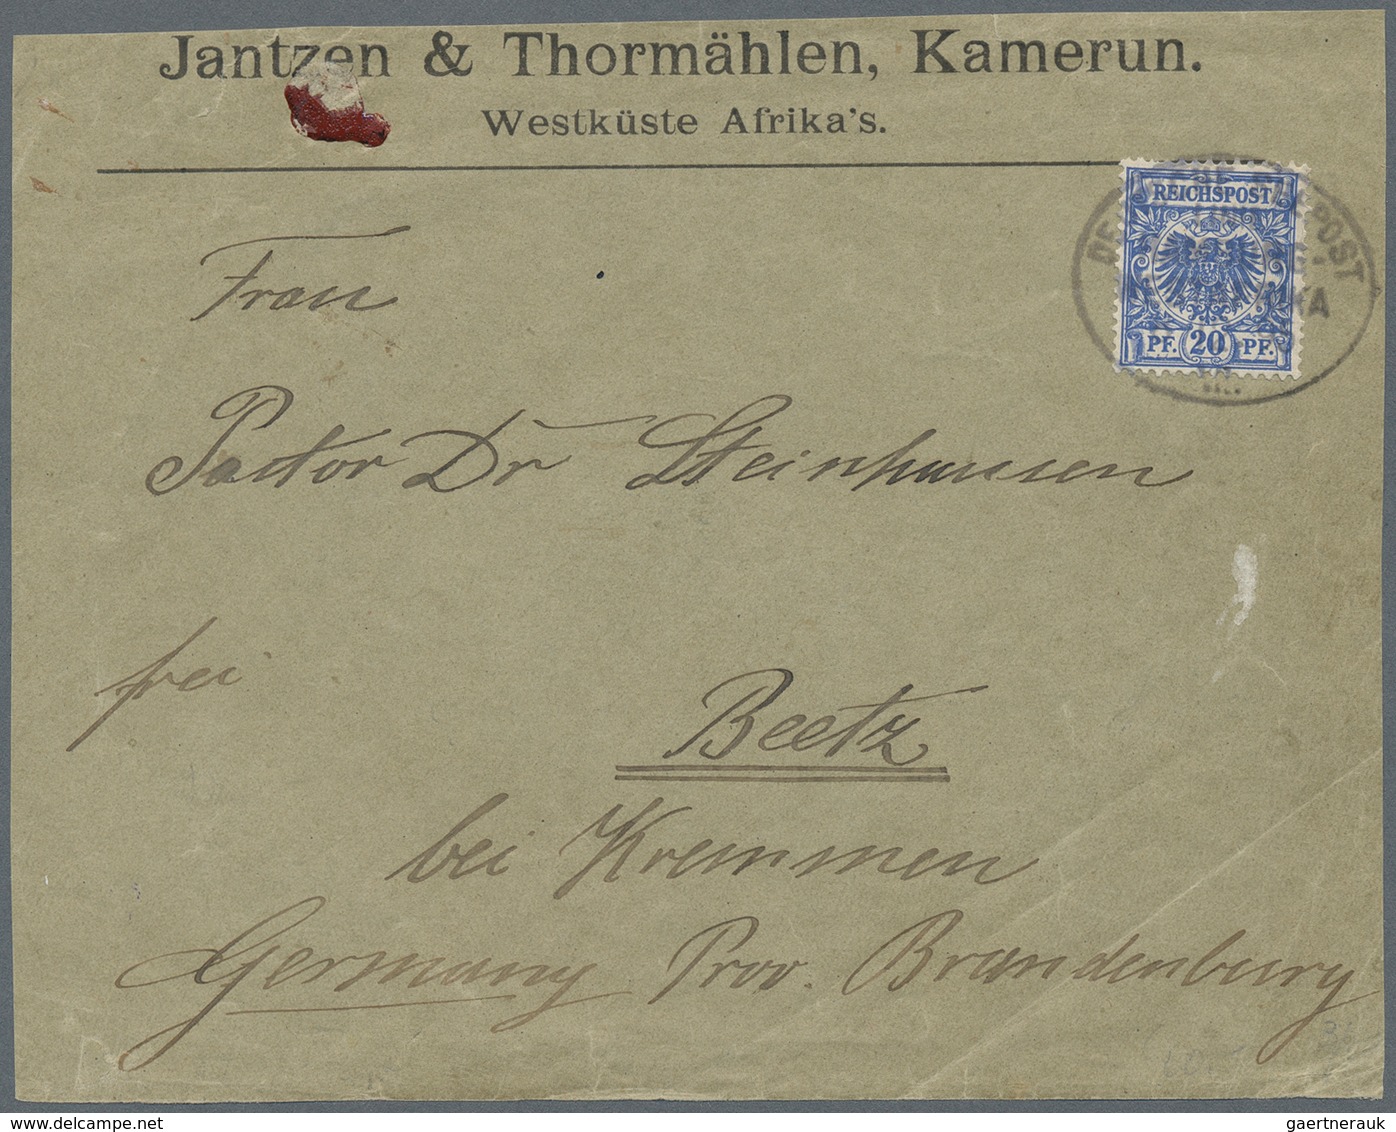 Jantzen & Thormählen, Kamerun.
Westküste Afrika's.
REICHSPOST
PF. 20 PF.
POST
KA
Frau
Pastor Dr Steinhausen
frei
Beetz
bei Kremmen
Germany Prov. Brandenburg
delcampe.net
gaertnerauk